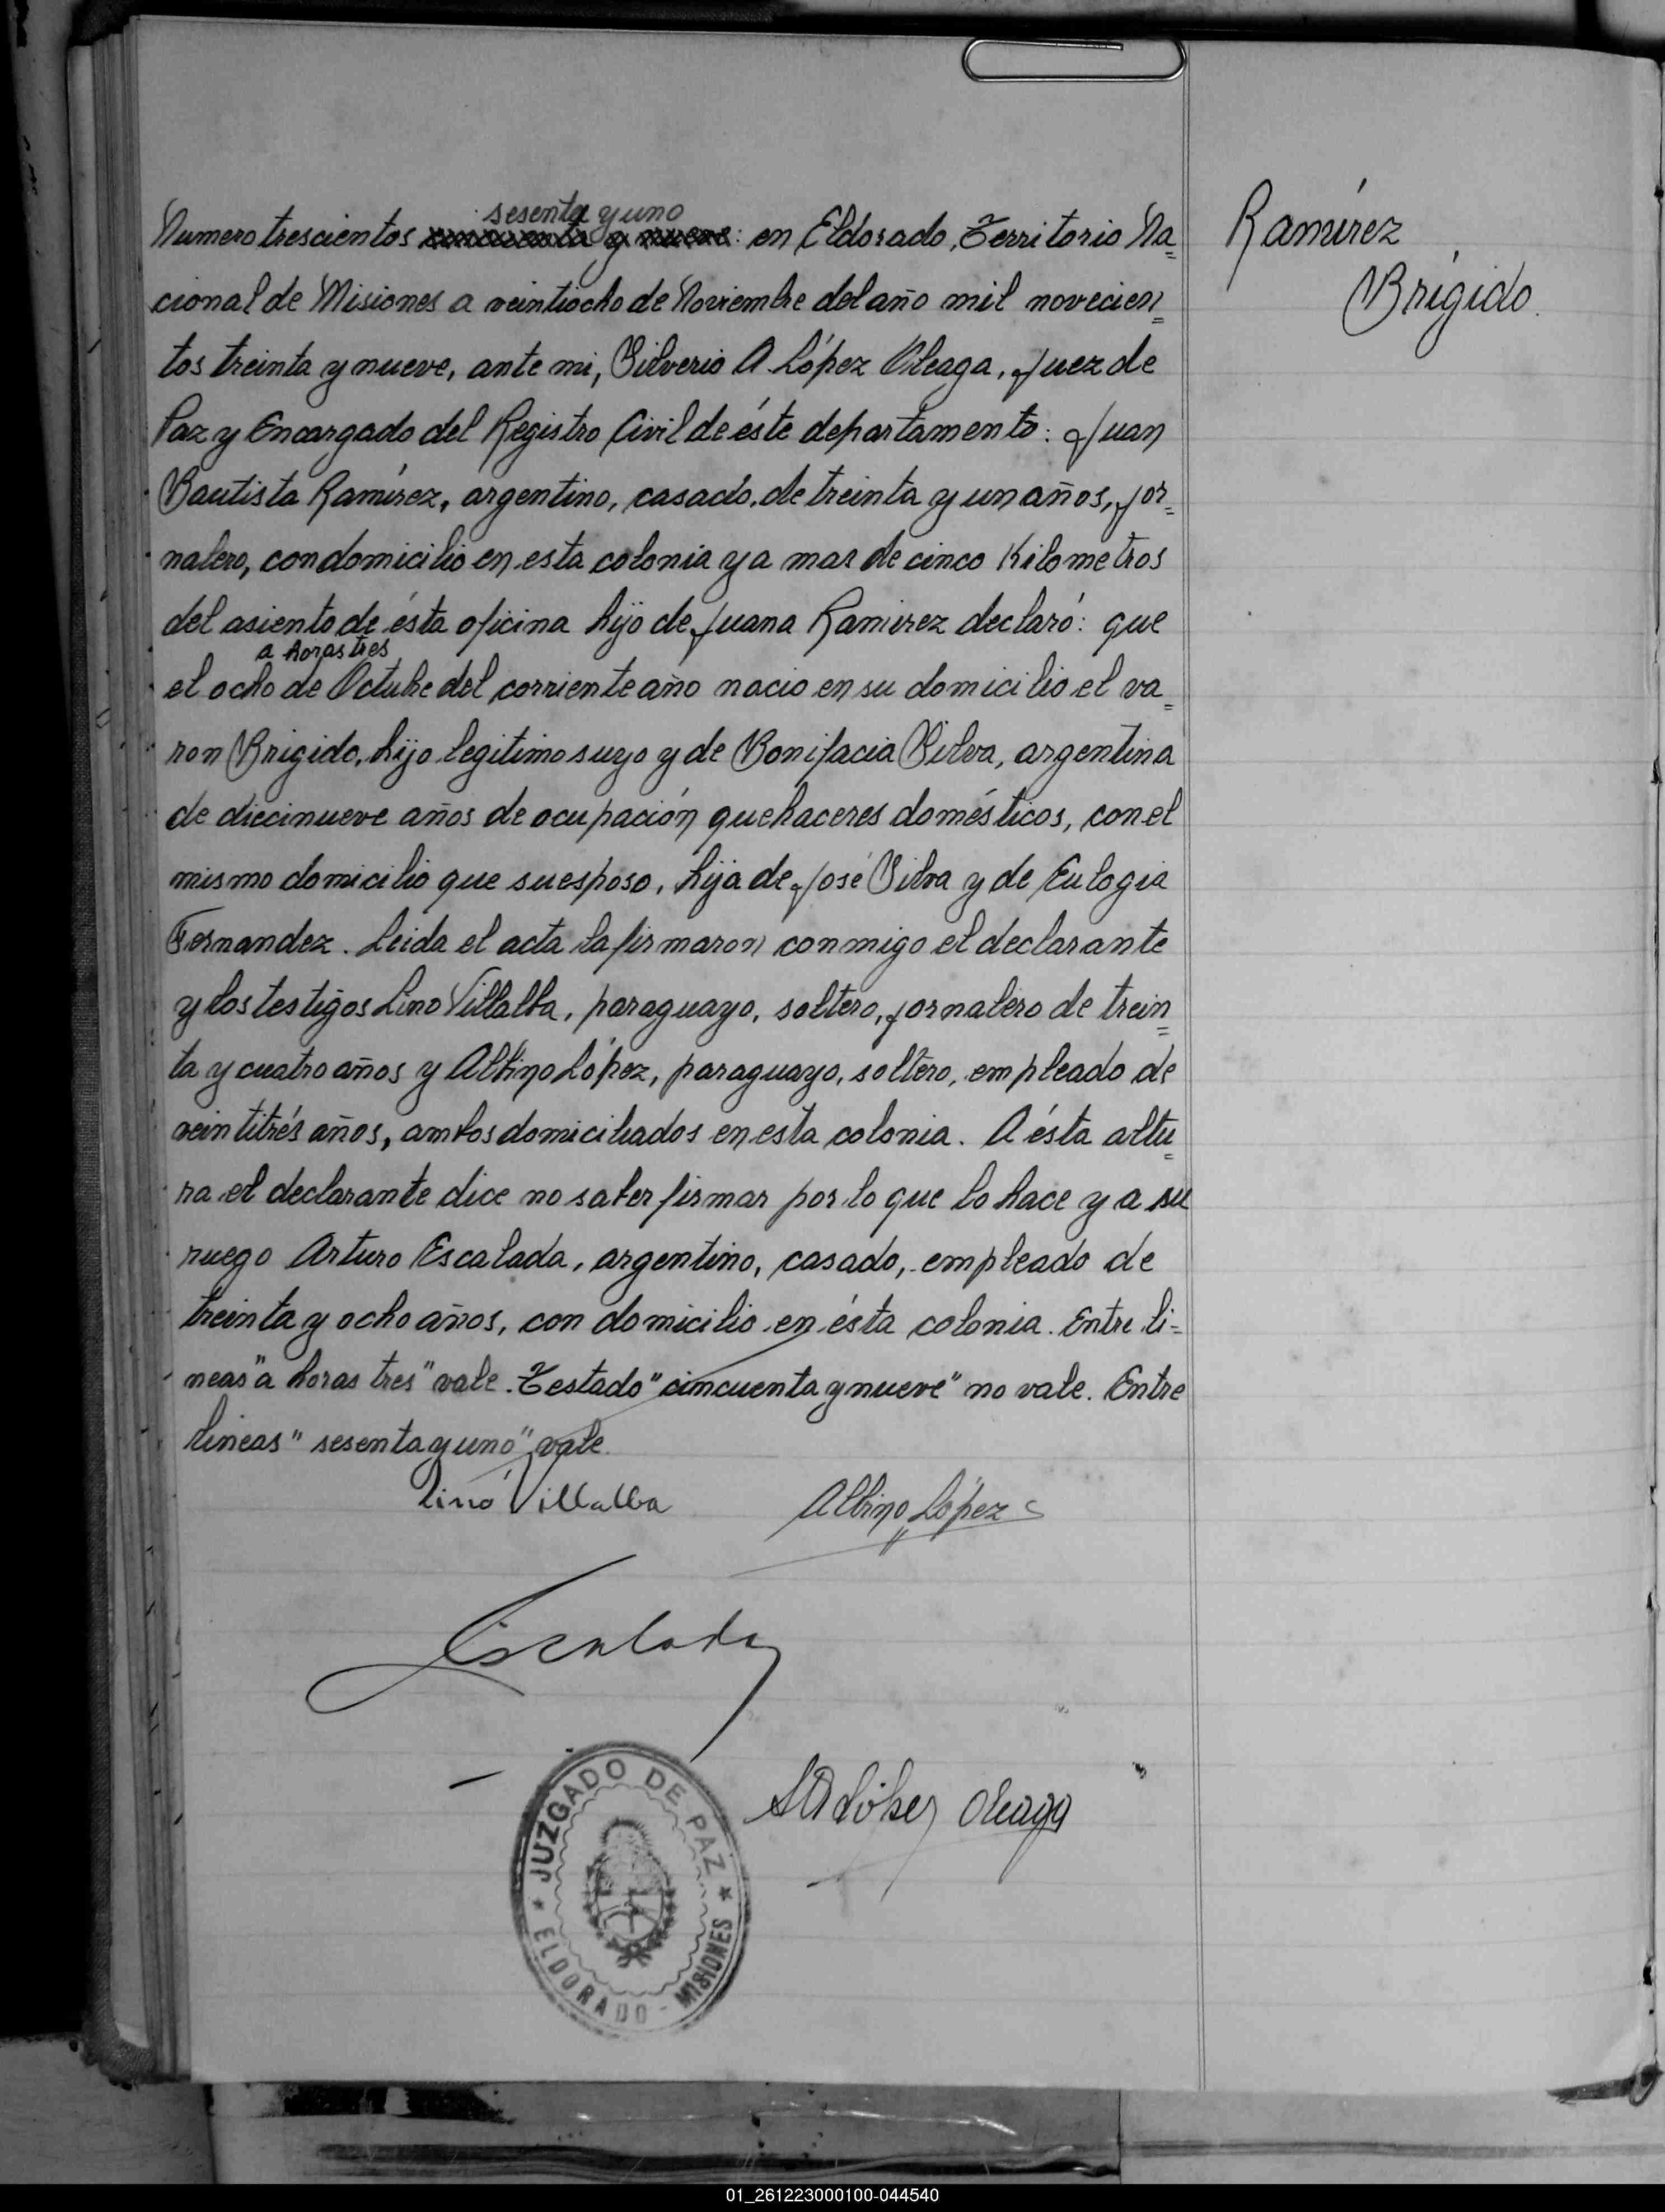 sesenta y uno
Numero trescientos cincuenta y nueve: en Eldorado, Territorio Na=
cional de Misiones a veintiocho de Noviembre del año mil novecien=
tos treinta y nueve, ante mi, Silverio A. López Oleaga, Juez de
Paz y Encargado del Registro Civil de éste departamento: Juan
Bautista Ramírez, argentino, casado, de treinta y un años, jor=
nalero, con domicilio en esta colonia y a mas de cinco Kilometros
del asiento de ésta oficina hijo de Juana Ramirez declaró: que
a horas tres
el ocho de Octubre del corriente año nacio en su domicilio el va=
ron Brigido, hijo legitimo suyo y de Bonifacia Silva, argentina
de diecinueve años de ocupación quehaceres domésticos, con el
mismo domicilio que su esposo, hija de José Silva y de Eulogia
Fernandez. Leida el acta la firmaron conmigo el declarante
y los testigos Lino Villalba, paraguayo, soltero, jornalero de trein=
ta y cuatro años y Albino López, paraguayo, soltero, empleado de
veintitrés años, ambos domiciliados en esta colonia. A ésta altu=
ra el declarante dice no saber firmar por lo que lo hace y a su
ruego Arturo Escalada, argentino, casado, empleado de
treinta y ocho años, con domicilio en ésta colonia. Entre li=
neas "a horas tres" vale. Testado "cincuenta y nueve" no vale. Entre
lineas "sesenta y uno" vale
Lino Villalba Albino López
Escalada
SA López Oleaga
JUZGADO DE PAZ
ELDORADO - MISIONES
Ramírez
Brígido.
01_261223000100-044540